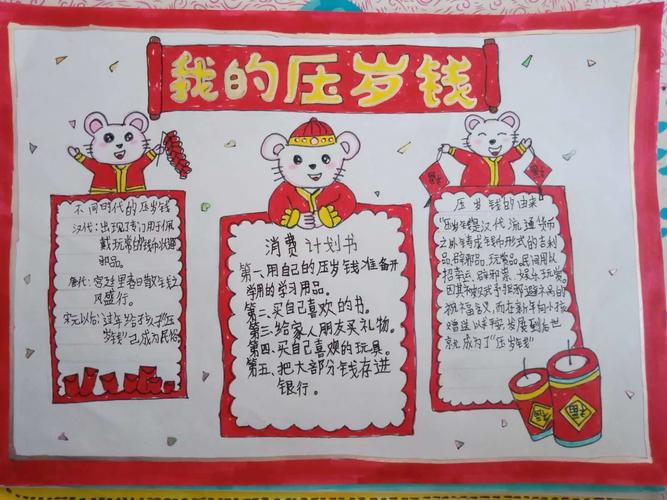 我的压岁钱
不同时代的压岁钱
汉代:出现了专门用于佩
戴玩赏的钱币状避
邪品。
唐代:宫廷里春日散钱之
风盛行。
宋元以后:过年给孩子"压
岁钱"已成为民俗
消费计划书
第一、用自己的压岁钱准备开
学用的学习用品。
第二、买自己喜欢的书。
第三、给家人朋友买礼物。
第四、买自己喜欢的玩具。
第五、把大部分钱存进
银行。
压岁钱的由来
"压岁钱是汉代流通货币
之外铸成钱币形式的吉利
品,辟邪品,玩赏品。民间用以
招幸运,辟邪祟、娱乐玩赏。
因其被赋予驱邪避不祥的
祝福含义,而在新年向小孩
赠送以来,发展到后世
就成为了"压岁钱"
福
福